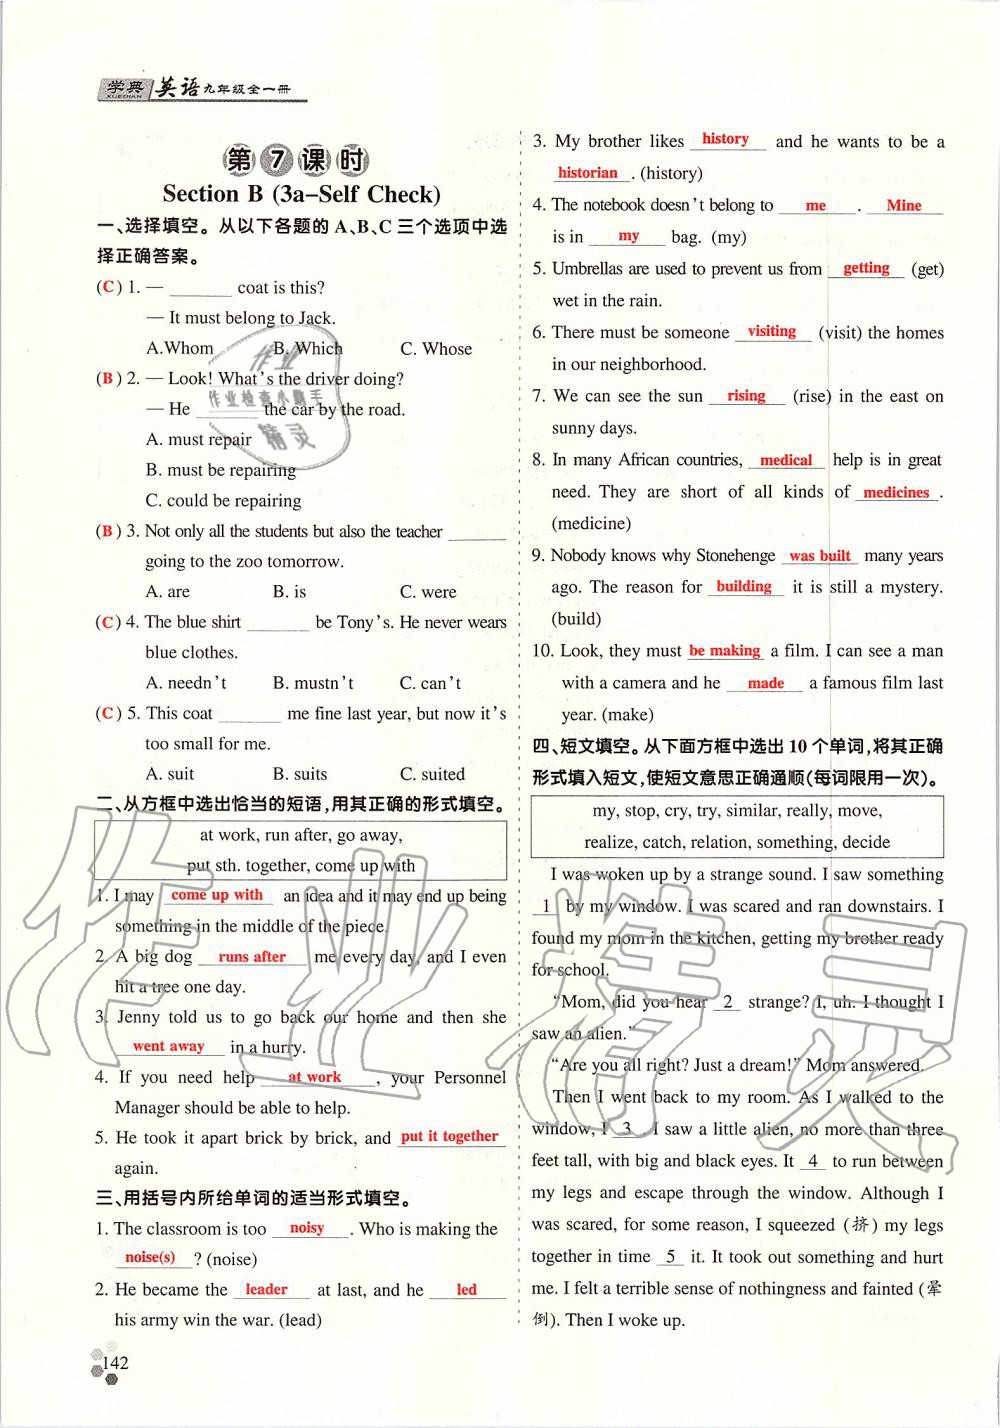 学典 XUEDIAN 英语九年级全一册
第7课时
Section B (3a–Self Check)
一、选择填空。从以下各题的A、B、C三个选项中选
择正确答案。
(C) 1. — ______ coat is this?
— It must belong to Jack.
A.Whom B. Which C. Whose
(B) 2. — Look! What's the driver doing?
— He ______ the car by the road.
A. must repair
B. must be repairing
C. could be repairing
(B) 3. Not only all the students but also the teacher ______
going to the zoo tomorrow.
A. are B. is C. were
(C) 4. The blue shirt ______ be Tony's. He never wears
blue clothes.
A. needn't B. mustn't C. can't
(C) 5. This coat ______ me fine last year, but now it's
too small for me.
A. suit B. suits C. suited
二、从方框中选出恰当的短语,用其正确的形式填空。
at work, run after, go away,
put sth. together, come up with
1. I may come up with an idea and it may end up being
something in the middle of the piece.
2. A big dog runs after me every day, and I even
hit a tree one day.
3. Jenny told us to go back our home and then she
went away in a hurry.
4. If you need help at work, your Personnel
Manager should be able to help.
5. He took it apart brick by brick, and put it together
again.
三、用括号内所给单词的适当形式填空。
1. The classroom is too noisy. Who is making the
noise(s)? (noise)
2. He became the leader at last, and he led
his army win the war. (lead)
142
3. My brother likes history and he wants to be a
historian. (history)
4. The notebook doesn't belong to me. Mine
is in my bag. (my)
5. Umbrellas are used to prevent us from getting (get)
wet in the rain.
6. There must be someone visiting (visit) the homes
in our neighborhood.
7. We can see the sun rising (rise) in the east on
sunny days.
8. In many African countries, medical help is in great
need. They are short of all kinds of medicines.
(medicine)
9. Nobody knows why Stonehenge was built many years
ago. The reason for building it is still a mystery.
(build)
10. Look, they must be making a film. I can see a man
with a camera and he made a famous film last
year. (make)
四、短文填空。从下面方框中选出10个单词,将其正确
形式填入短文,使短文意思正确通顺(每词限用一次)。
my, stop, cry, try, similar, really, move,
realize, catch, relation, something, decide
I was woken up by a strange sound. I saw something
1 by my window. I was scared and ran downstairs. I
found my mom in the kitchen, getting my brother ready
for school.
"Mom, did you hear 2 strange? I, uh. I thought I
saw an alien."
"Are you all right? Just a dream!" Mom answered.
Then I went back to my room. As I walked to the
window, I 3 I saw a little alien, no more than three
feet tall, with big and black eyes. It 4 to run between
my legs and escape through the window. Although I
was scared, for some reason, I squeezed (挤) my legs
together in time 5 it. It took out something and hurt
me. I felt a terrible sense of nothingness and fainted (晕
倒). Then I woke up.
作业
作业检查小帮手
精灵
作业精灵